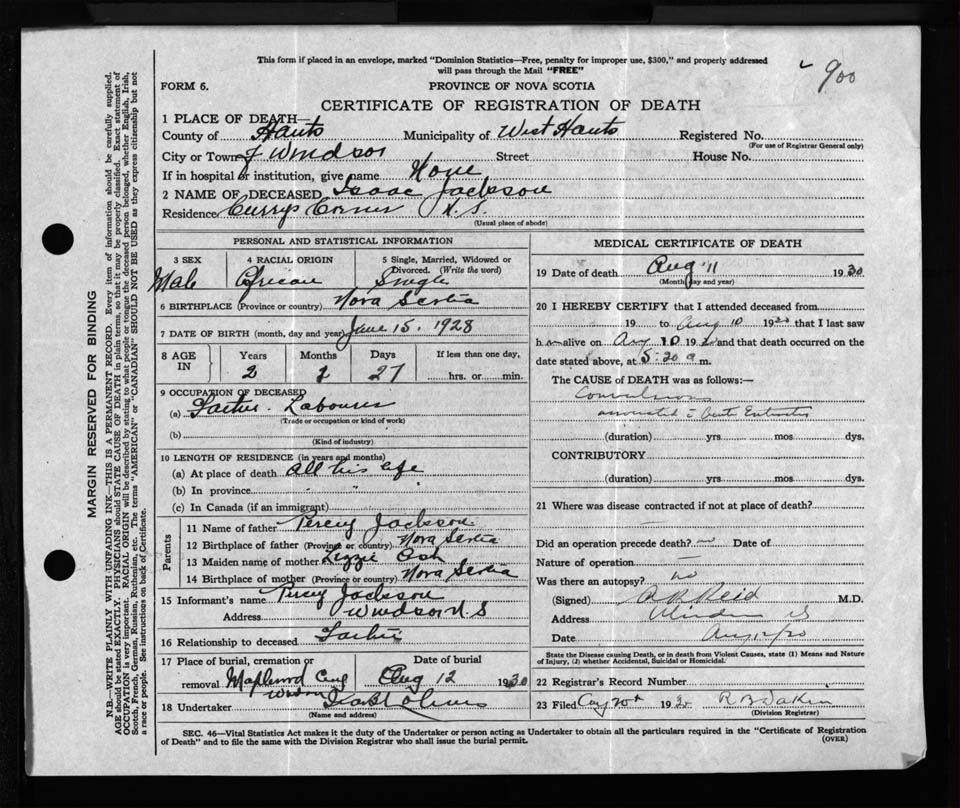 This form if placed in an envelope, marked "Dominion Statistics—Free, penalty for improper use, $300," and properly addressed
will pass through the Mail "FREE"
900
FORM 6.
PROVINCE OF NOVA SCOTIA
CERTIFICATE OF REGISTRATION OF DEATH
1 PLACE OF DEATH—
County of Hants Municipality of West Hants Registered No.
(For use of Registrar General only)
City or Town of Windsor Street House No.
If in hospital or institution, give name None
2 NAME OF DECEASED Isaac Jackson
Residence Currys Corner N.S.
(Usual place of abode)
PERSONAL AND STATISTICAL INFORMATION
3 SEX 4 RACIAL ORIGIN 5 Single, Married, Widowed or Divorced. (Write the word)
Male African Single
6 BIRTHPLACE (Province or country) Nova Scotia
7 DATE OF BIRTH (month, day and year) June 15. 1928
8 AGE IN Years Months Days If less than one day,
2 2 27 hrs. or min.
9 OCCUPATION OF DECEASED
(a) Father Labourer
(Trade or occupation or kind of work)
(b)
(Kind of industry)
10 LENGTH OF RESIDENCE (in years and months)
(a) At place of death all his life
(b) In province " "
(c) In Canada (if an immigrant)
Parents
11 Name of father Percy Jackson
12 Birthplace of father (Province or country) Nova Scotia
13 Maiden name of mother Lizzie Ash
14 Birthplace of mother (Province or country) Nova Scotia
15 Informant's name Percy Jackson
Address Windsor N.S
16 Relationship to deceased Father
17 Place of burial, cremation or removal Date of burial
Maplewood Cem Windsor Aug 12 1930
18 Undertaker
(Name and address)
MEDICAL CERTIFICATE OF DEATH
19 Date of death Aug 11 1930
(Month, day and year)
20 I HEREBY CERTIFY that I attended deceased from
19 to Aug 10 1930 that I last saw
h im alive on Aug 10 1930 and that death occurred on the
date stated above, at 5.20 a m.
The CAUSE OF DEATH was as follows:—
Convulsions
associated c̄ Acute Enteritis
(duration) yrs. mos. dys.
CONTRIBUTORY
(duration) yrs. mos. dys.
21 Where was disease contracted if not at place of death?
Did an operation precede death? no Date of
Nature of operation —
Was there an autopsy? no
(Signed) Reid M.D.
Address Windsor NS
Date Aug 12/30
State the Disease causing Death, or in death from Violent Causes, state (1) Means and Nature
of Injury, (2) whether Accidental, Suicidal or Homicidal.
22 Registrar's Record Number
23 Filed Aug 1930 R B Dakin
(Division Registrar)
SEC. 46—Vital Statistics Act makes it the duty of the Undertaker or person acting as Undertaker to obtain all the particulars required in the "Certificate of Registration
of Death" and to file the same with the Division Registrar who shall issue the burial permit. (OVER)
MARGIN RESERVED FOR BINDING
N.B.—WRITE PLAINLY WITH UNFADING INK—THIS IS A PERMANENT RECORD. Every item of information should be carefully supplied.
AGE should be stated EXACTLY. PHYSICIANS should STATE CAUSE OF DEATH in plain terms, so that it may be properly classified. Exact statement of
OCCUPATION is very important. RACIAL ORIGIN will be described by stating to what people or tongue the deceased person belonged, whether English, Irish,
Scotch, French, German, Russian, Ruthenian, etc. The terms "AMERICAN" or "CANADIAN" SHOULD NOT BE USED as they express citizenship but not
a race or people. See instructions on back of Certificate.